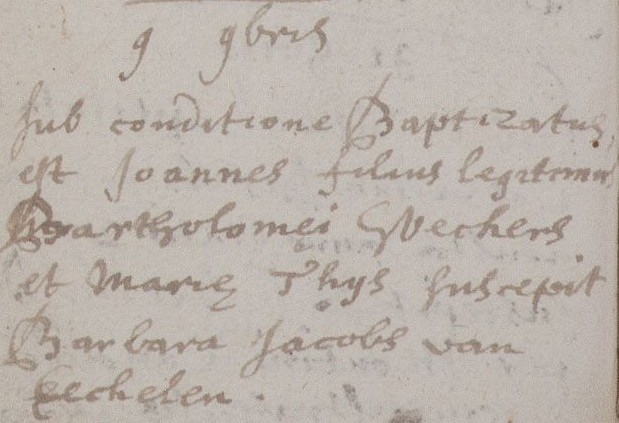 9 9bris
sub conditione Baptizatus
est Joannes filius legitimus
Bartholomei Wechers
et Marię Thys suscepit
Barbara Jacobs van
Eechelen.